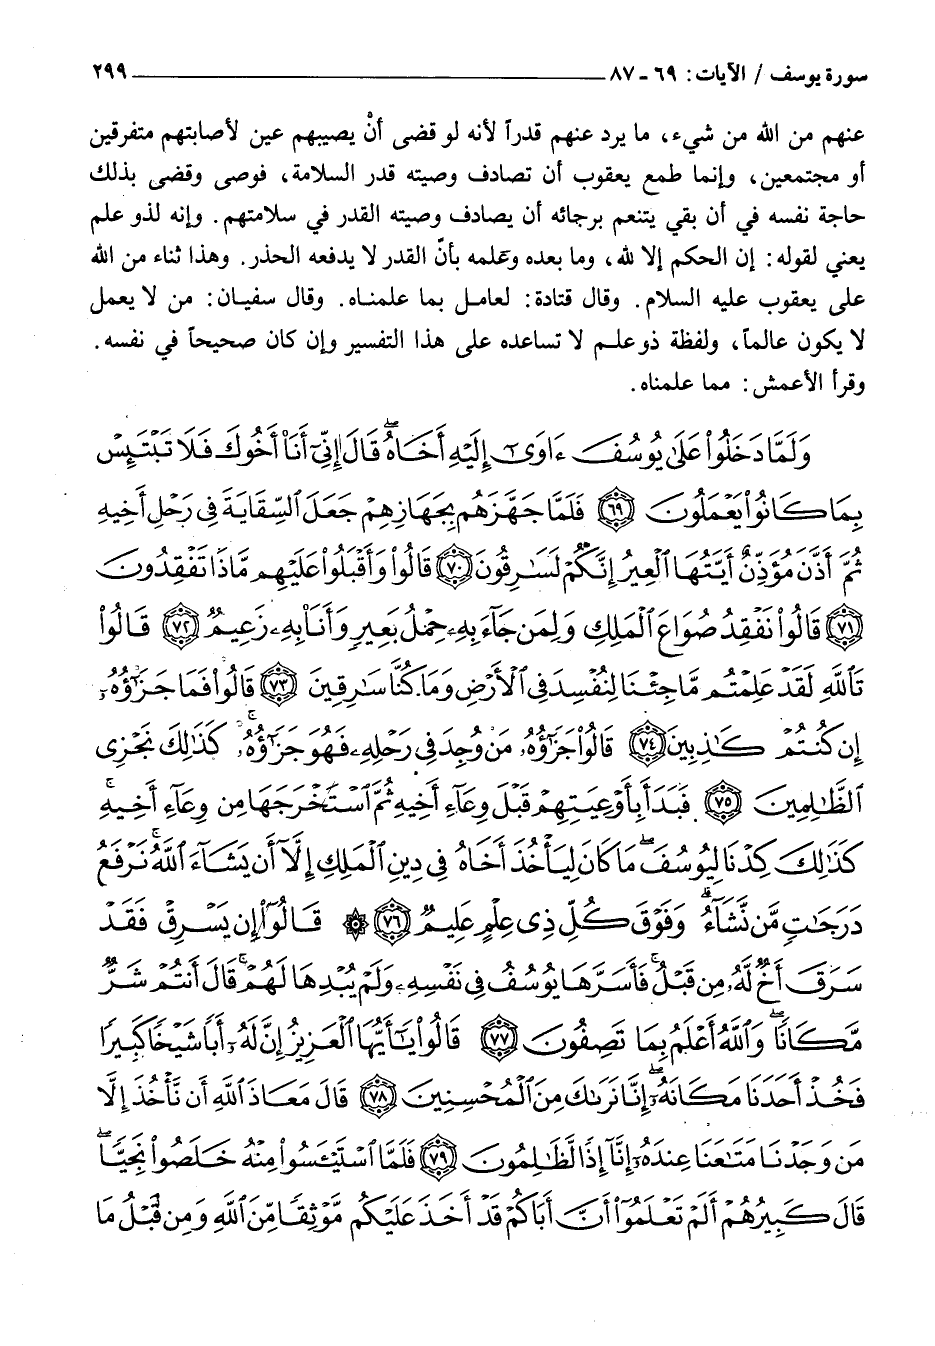 سورة يوسف / الآيات : ٦٩ - ٨٧ ٢٩٩
عنهم من الله من شيء، ما يرد عنهم قدراً لأنه لو قضى أنْ يصيبهم عين لأصابتهم متفرقين
أو مجتمعين، وإنما طمع يعقوب أن تصادف وصيته قدر السلامة، فوصى وقضى بذلك
حاجة نفسه في أن بقي يتنعم برجائه أن يصادف وصيته القدر في سلامتهم. وإنه لذو علم
يعني لقوله: إن الحكم إلا لله، وما بعده وعلمه بأنّ القدر لا يدفعه الحذر. وهذا ثناء من الله
على يعقوب عليه السلام. وقال قتادة: لعامل بما علمناه. وقال سفيان: من لا يعمل
لا يكون عالماً، ولفظة ذو علم لا تساعده على هذا التفسير وإن كان صحيحاً في نفسه.
وقرأ الأعمش: مما علمناه.
وَلَمَّا دَخَلُوا۟ عَلَىٰ يُوسُفَ ءَاوَىٰٓ إِلَيْهِ أَخَاهُ ۖ قَالَ إِنِّىٓ أَنَا۠ أَخُوكَ فَلَا تَبْتَئِسْ
بِمَا كَانُوا۟ يَعْمَلُونَ ﴿٦٩﴾ فَلَمَّا جَهَّزَهُم بِجَهَازِهِمْ جَعَلَ ٱلسِّقَايَةَ فِى رَحْلِ أَخِيهِ
ثُمَّ أَذَّنَ مُؤَذِّنٌ أَيَّتُهَا ٱلْعِيرُ إِنَّكُمْ لَسَٰرِقُونَ ﴿٧٠﴾ قَالُوا۟ وَأَقْبَلُوا۟ عَلَيْهِم مَّاذَا تَفْقِدُونَ
﴿٧١﴾ قَالُوا۟ نَفْقِدُ صُوَاعَ ٱلْمَلِكِ وَلِمَن جَآءَ بِهِۦ حِمْلُ بَعِيرٍ وَأَنَا۠ بِهِۦ زَعِيمٌ ﴿٧٢﴾ قَالُوا۟
تَٱللَّهِ لَقَدْ عَلِمْتُم مَّا جِئْنَا لِنُفْسِدَ فِى ٱلْأَرْضِ وَمَا كُنَّا سَٰرِقِينَ ﴿٧٣﴾ قَالُوا۟ فَمَا جَزَٰٓؤُهُۥٓ
إِن كُنتُمْ كَٰذِبِينَ ﴿٧٤﴾ قَالُوا۟ جَزَٰٓؤُهُۥ مَن وُجِدَ فِى رَحْلِهِۦ فَهُوَ جَزَٰٓؤُهُۥ ۚ كَذَٰلِكَ نَجْزِى
ٱلظَّٰلِمِينَ ﴿٧٥﴾ فَبَدَأَ بِأَوْعِيَتِهِمْ قَبْلَ وِعَآءِ أَخِيهِ ثُمَّ ٱسْتَخْرَجَهَا مِن وِعَآءِ أَخِيهِ ۚ
كَذَٰلِكَ كِدْنَا لِيُوسُفَ ۖ مَا كَانَ لِيَأْخُذَ أَخَاهُ فِى دِينِ ٱلْمَلِكِ إِلَّآ أَن يَشَآءَ ٱللَّهُ ۚ نَرْفَعُ
دَرَجَٰتٍ مَّن نَّشَآءُ ۗ وَفَوْقَ كُلِّ ذِى عِلْمٍ عَلِيمٌ ﴿٧٦﴾ ۞ قَالُوٓا۟ إِن يَسْرِقْ فَقَدْ
سَرَقَ أَخٌ لَّهُۥ مِن قَبْلُ ۚ فَأَسَرَّهَا يُوسُفُ فِى نَفْسِهِۦ وَلَمْ يُبْدِهَا لَهُمْ ۚ قَالَ أَنتُمْ شَرٌّ
مَّكَانًا ۖ وَٱللَّهُ أَعْلَمُ بِمَا تَصِفُونَ ﴿٧٧﴾ قَالُوا۟ يَٰٓأَيُّهَا ٱلْعَزِيزُ إِنَّ لَهُۥٓ أَبًا شَيْخًا كَبِيرًا
فَخُذْ أَحَدَنَا مَكَانَهُۥٓ ۖ إِنَّا نَرَىٰكَ مِنَ ٱلْمُحْسِنِينَ ﴿٧٨﴾ قَالَ مَعَاذَ ٱللَّهِ أَن نَّأْخُذَ إِلَّا
مَن وَجَدْنَا مَتَٰعَنَا عِندَهُۥٓ إِنَّآ إِذًا لَّظَٰلِمُونَ ﴿٧٩﴾ فَلَمَّا ٱسْتَيْـَٔسُوا۟ مِنْهُ خَلَصُوا۟ نَجِيًّا ۖ
قَالَ كَبِيرُهُمْ أَلَمْ تَعْلَمُوٓا۟ أَنَّ أَبَاكُمْ قَدْ أَخَذَ عَلَيْكُم مَّوْثِقًا مِّنَ ٱللَّهِ وَمِن قَبْلُ مَا